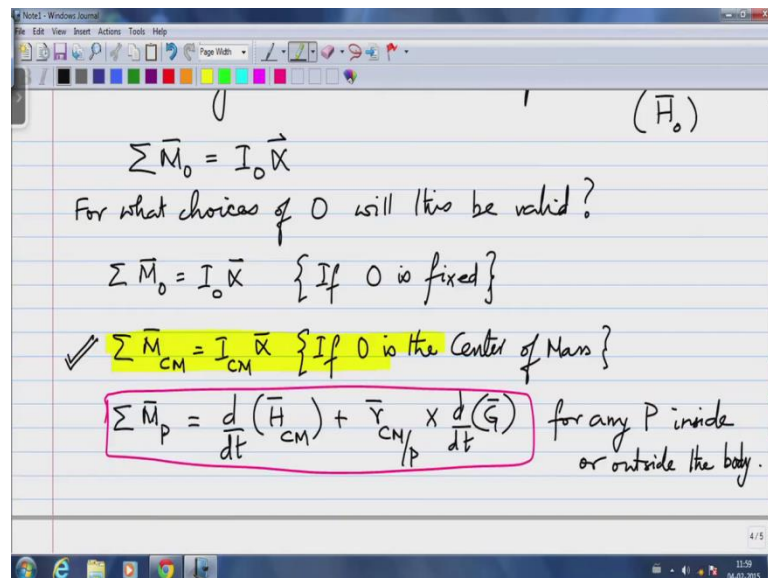 Note1 - Windows Journal
File Edit View Insert Actions Tools Help
Page Width
(H̄₀)
Σ M̄₀ = I₀ α⃗
For what choices of O will this be valid?
Σ M̄₀ = I₀ ᾱ {If O is fixed}
✓ Σ M̄_CM = I_CM ᾱ {If O is the Center of Mass}
Σ M̄_P = d/dt (H̄_CM) + r̄_CM/P × d/dt (Ḡ) for any P inside
or outside the body.
4/5
11:59
04-02-2015